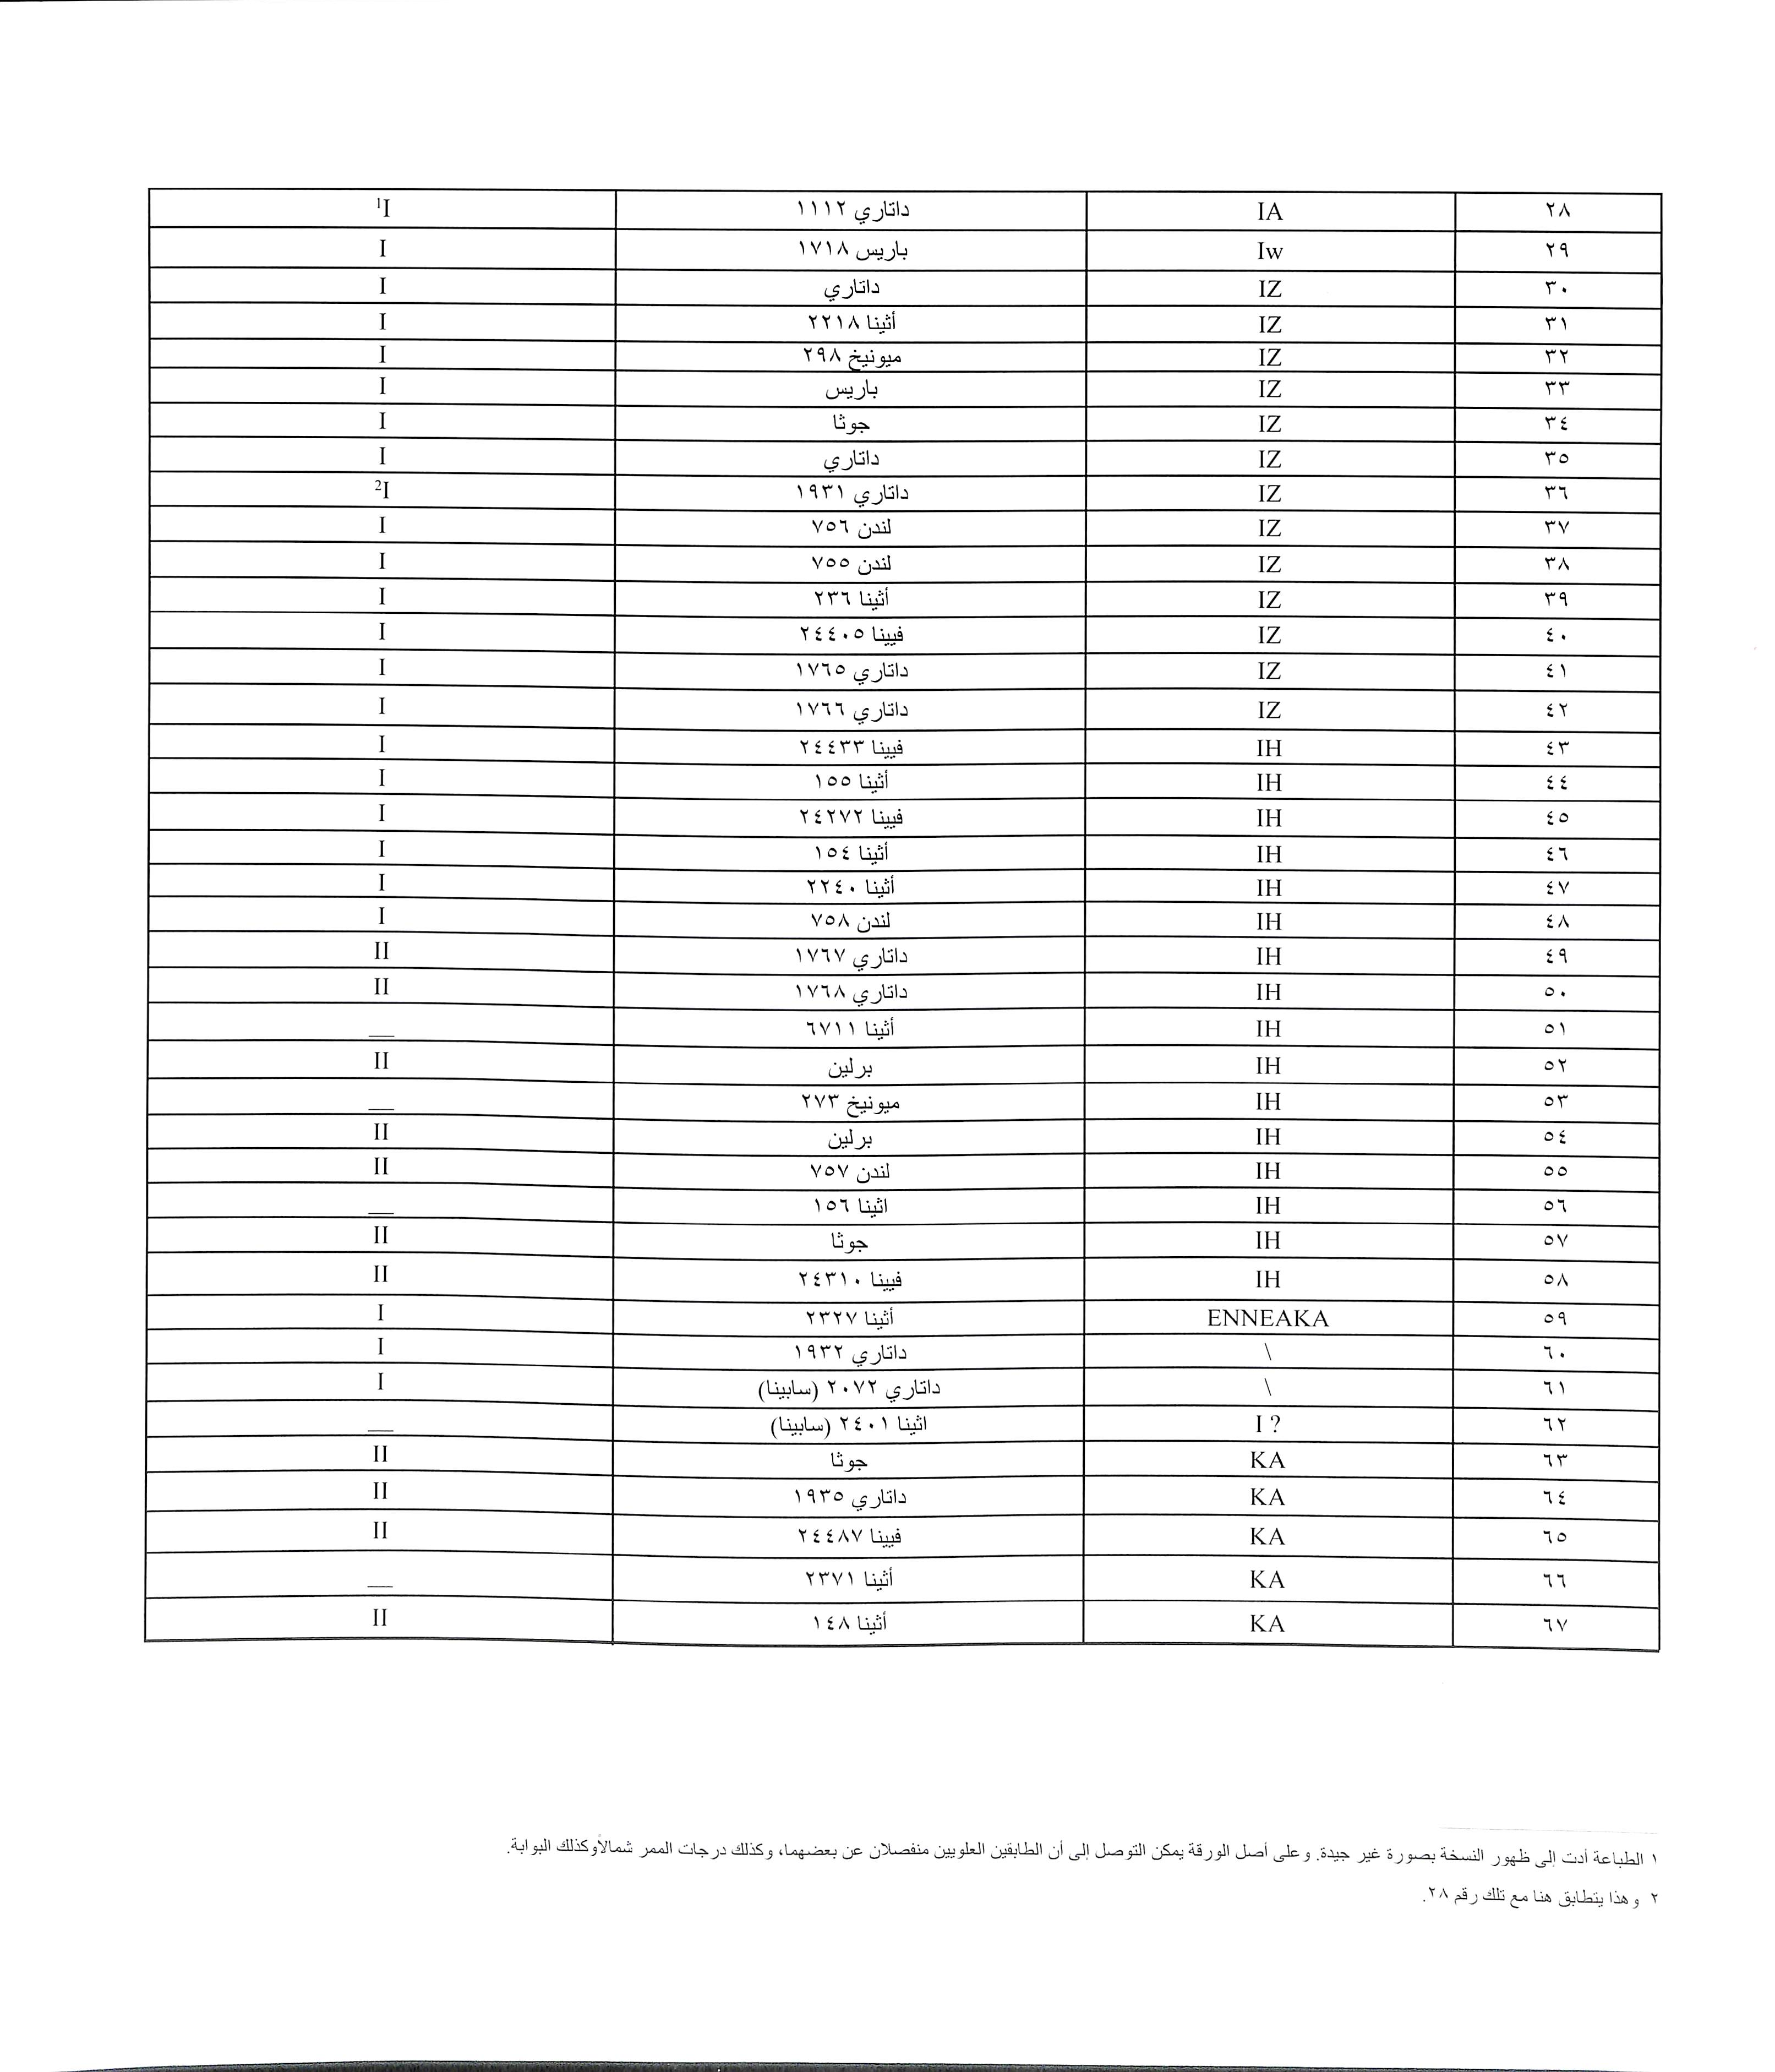 ٢٨ IA داتاري ١١١٢ I¹
٢٩ Iw باريس ١٧١٨ I
٣٠ IZ داتاري I
٣١ IZ أثينا ٢٢١٨ I
٣٢ IZ ميونيخ ٢٩٨ I
٣٣ IZ باريس I
٣٤ IZ جوثا I
٣٥ IZ داتاري I
٣٦ IZ داتاري ١٩٣١ I²
٣٧ IZ لندن ٧٥٦ I
٣٨ IZ لندن ٧٥٥ I
٣٩ IZ أثينا ٢٣٦ I
٤٠ IZ فيينا ٢٤٤٠٥ I
٤١ IZ داتاري ١٧٦٥ I
٤٢ IZ داتاري ١٧٦٦ I
٤٣ IH فيينا ٢٤٤٣٣ I
٤٤ IH أثينا ١٥٥ I
٤٥ IH فيينا ٢٤٢٧٢ I
٤٦ IH أثينا ١٥٤ I
٤٧ IH أثينا ٢٢٤٠ I
٤٨ IH لندن ٧٥٨ I
٤٩ IH داتاري ١٧٦٧ II
٥٠ IH داتاري ١٧٦٨ II
٥١ IH أثينا ٦٧١١ __
٥٢ IH برلين II
٥٣ IH ميونيخ ٢٧٣ __
٥٤ IH برلين II
٥٥ IH لندن ٧٥٧ II
٥٦ IH اثينا ١٥٦ __
٥٧ IH جوثا II
٥٨ IH فيينا ٢٤٣١٠ II
٥٩ ENNEAKA أثينا ٢٣٢٧ I
٦٠ \ داتاري ١٩٣٢ I
٦١ \ داتاري ٢٠٧٢ (سابينا) I
٦٢ I ? اثينا ٢٤٠١ (سابينا) __
٦٣ KA جوثا II
٦٤ KA داتاري ١٩٣٥ II
٦٥ KA فيينا ٢٤٤٨٧ II
٦٦ KA أثينا ٢٣٧١ __
٦٧ KA أثينا ١٤٨ II
١ الطباعة أدت إلى ظهور النسخة بصورة غير جيدة. وعلى أصل الورقة يمكن التوصل إلى أن الطابقين العلويين منفصلان عن بعضهما، وكذلك درجات الممر شمالاًوكذلك البوابة.
٢ وهذا يتطابق هنا مع تلك رقم ٢٨.